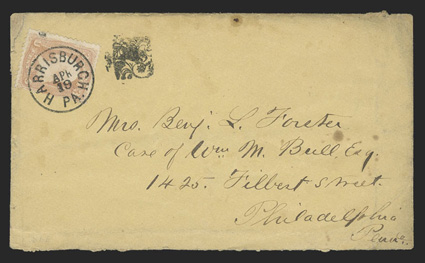 HARRISBURGH PA.
APR
19
Mrs. Benj. L. Forster
Care of Wm. M. Bull, Esq.
1425. Filbert Street.
Philadelphia
Penna.